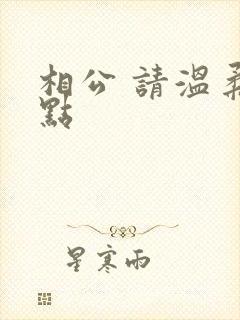 相公 請溫柔
點
星寒雨